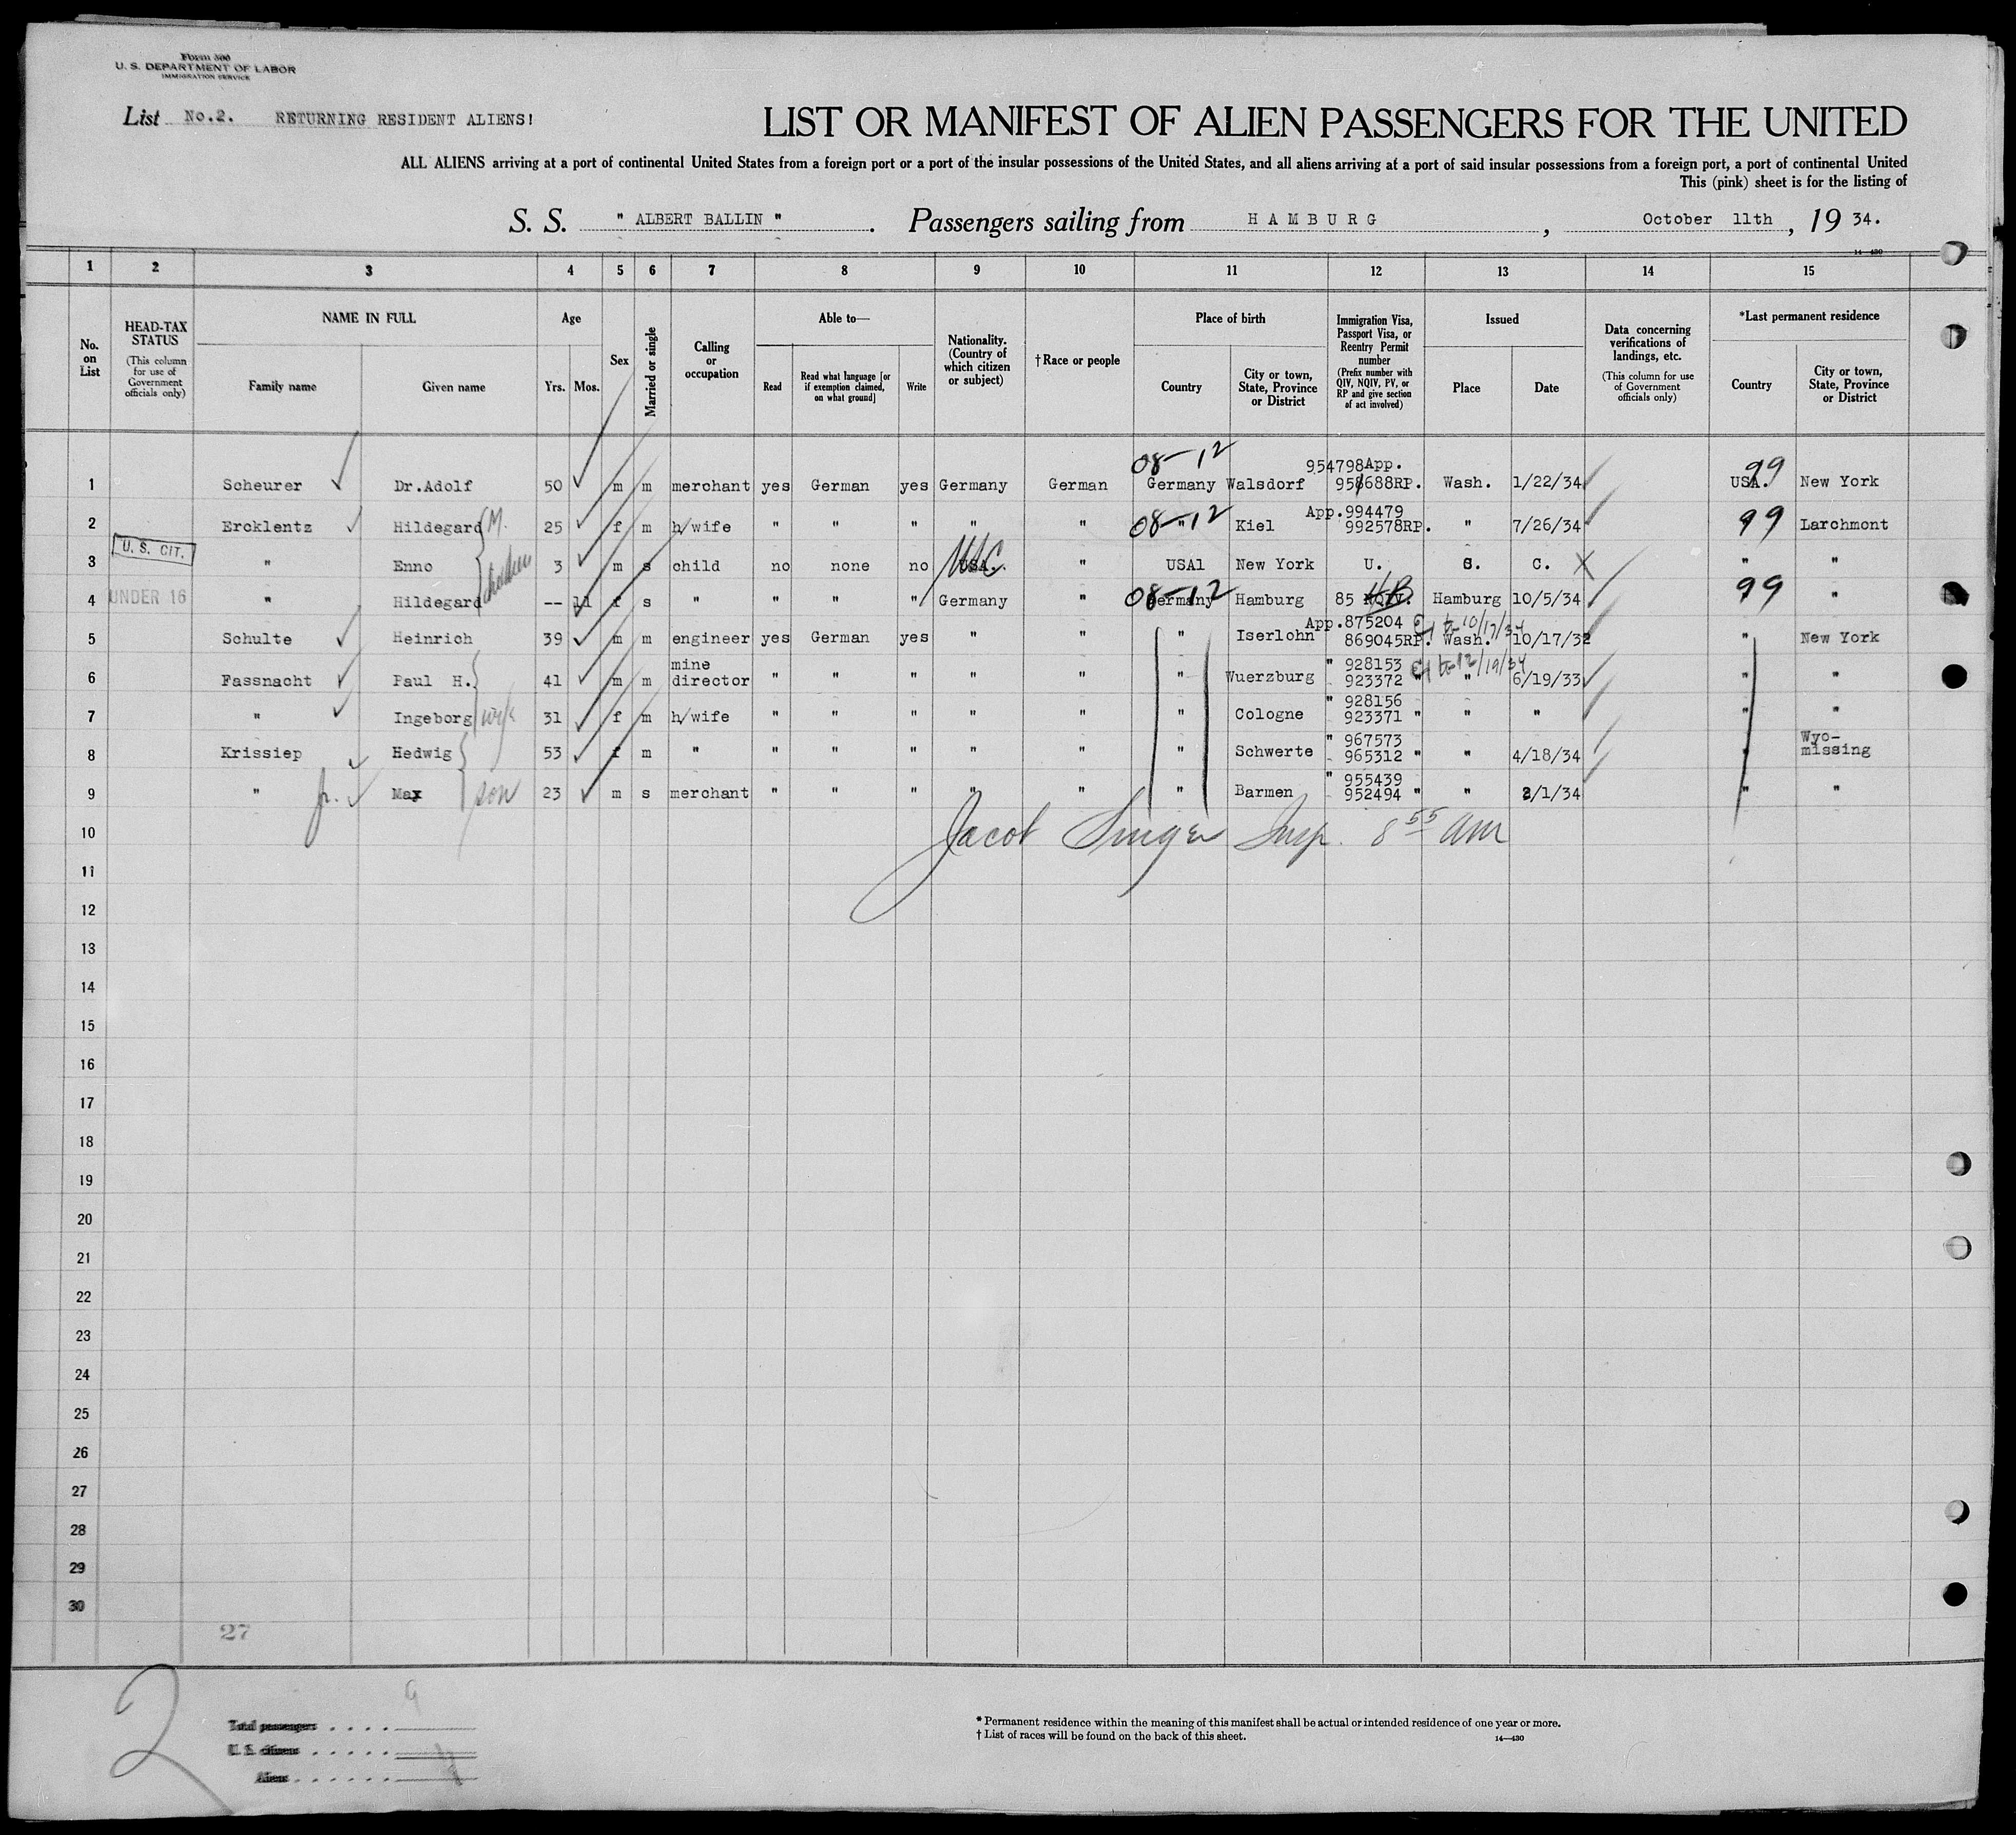 Form 500
U. S. DEPARTMENT OF LABOR
IMMIGRATION SERVICE
List No.2. RETURNING RESIDENT ALIENS!
LIST OR MANIFEST OF ALIEN PASSENGERS FOR THE UNITED
ALL ALIENS arriving at a port of continental United States from a foreign port or a port of the insular possessions of the United States, and all aliens arriving at a port of said insular possessions from a foreign port, a port of continental United
This (pink) sheet is for the listing of
S. S. " ALBERT BALLIN " . Passengers sailing from H A M B U R G , October 11th , 19 34.
14—430
1 2 3 4 5 6 7 8 9 10 11 12 13 14 15
No. on List
HEAD-TAX STATUS (This column for use of Government officials only)
NAME IN FULL Family name Given name
Age Yrs. Mos.
Sex
Married or single
Calling or occupation
Able to— Read Read what language [or if exemption claimed, on what ground] Write
Nationality. (Country of which citizen or subject)
†Race or people
Place of birth Country City or town, State, Province or District
Immigration Visa, Passport Visa, or Reentry Permit number (Prefix number with QIV, NQIV, PV, or RP and give section of act involved)
Issued Place Date
Data concerning verifications of landings, etc. (This column for use of Government officials only)
*Last permanent residence Country City or town, State, Province or District
08-12 954798App. 99
1 Scheurer Dr.Adolf 50 m m merchant yes German yes Germany German Germany Walsdorf 958688RP. Wash. 1/22/34 USA. New York
App.994479
2 Ercklentz Hildegard M. 25 f m h/wife " " " " " 08-12 " Kiel 992578RP. " 7/26/34 99 Larchmont
U. S. CIT.
3 " Enno 3 m s child no none no USA. USC " USA1 New York U. S. C. X " "
UNDER 16
4 " Hildegard -- 11 f s " " " " Germany " 08-12 Germany Hamburg 85 NQIV. Hamburg 10/5/34 99 "
children
App.875204 Ext to 10/17/34
5 Schulte Heinrich 39 m m engineer yes German yes " " " Iserlohn 869045RP. Wash. 10/17/32 " New York
mine " 928153 Ext to 12/19/34
6 Fassnacht Paul H. 41 m m director " " " " " " Wuerzburg 923372 " " 6/19/33 " "
" 928156
7 " Ingeborg wife 31 f m h/wife " " " " " " Cologne 923371 " " " " "
" 967573 Wyo-
8 Krissiep Hedwig 53 f m " " " " " " " Schwerte 965312 " " 4/18/34 " missing
" 955439
9 " jr. Max son 23 m s merchant " " " " " " Barmen 952494 " " 2/1/34 " "
10 Jacob Singer Insp. 8 55 am
11
12
13
14
15
16
17
18
19
20
21
22
23
24
25
26
27
28
29
30
27
2
Total passengers . . . . 9
U. S. citizens . . . . .
Aliens . . . . . .
* Permanent residence within the meaning of this manifest shall be actual or intended residence of one year or more.
† List of races will be found on the back of this sheet.
14—430